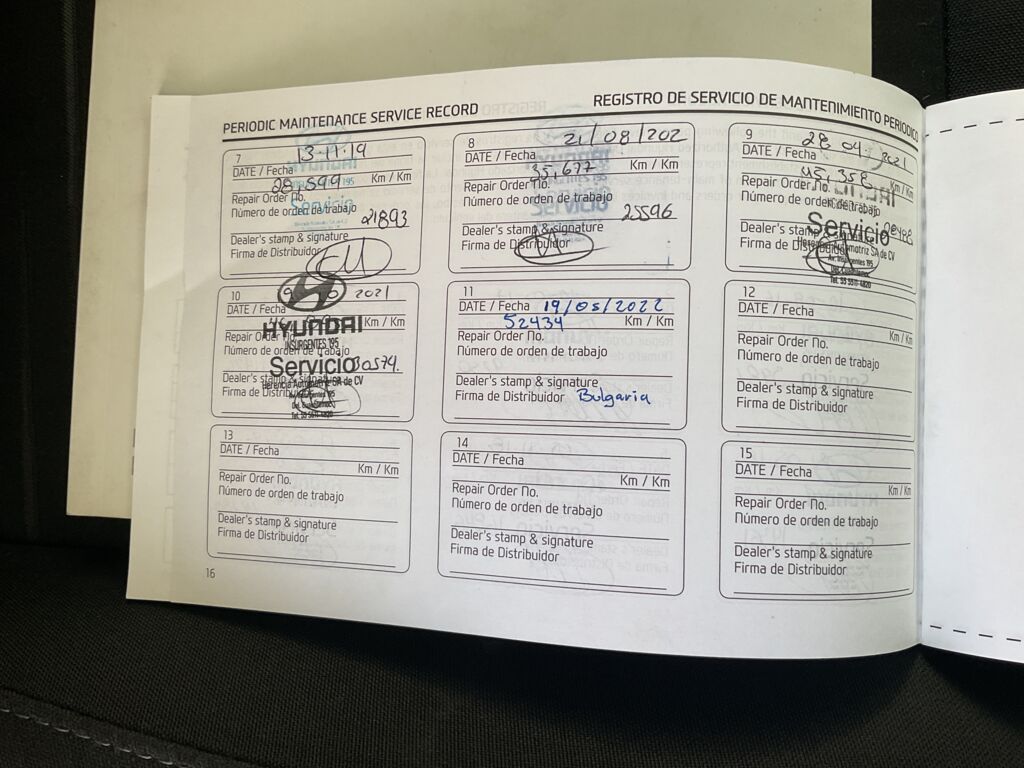 PERIODIC MAINTENANCE SERVICE RECORD
REGISTRO DE SERVICIO DE MANTENIMIENTO PERIODICO
7
13-11-19
DATE / Fecha
28,599 Km / Km
Repair Order No.
Número de orden de trabajo
21893
Dealer's stamp & signature
Firma de Distribuidor
8
21/08/202
DATE / Fecha
35,677 Km / Km
Repair Order No.
Número de orden de trabajo
25596
Dealer's stamp & signature
Firma de Distribuidor
9
28 04 2021
DATE / Fecha
45,358 Km / Km
Repair Order No.
Número de orden de trabajo
Servicio
Dealer's stamp & signature
Firma de Distribuidor
Av. Insurgentes 195
Tel. 55 5511-4820
10
2021
DATE / Fecha
HYUNDAI
Km / Km
Repair Order No.
INSURGENTES 195
Número de orden de trabajo
Servicio 30574.
Herencia Automotriz SA de CV
Dealer's stamp & signature
Firma de Distribuidor
Tel. 55 5511-4820
11
DATE / Fecha 19/05/2022
52434 Km / Km
Repair Order No.
Número de orden de trabajo
Dealer's stamp & signature
Firma de Distribuidor Bulgaria
12
DATE / Fecha
Km / Km
Repair Order No.
Número de orden de trabajo
Dealer's stamp & signature
Firma de Distribuidor
13
DATE / Fecha
Km / Km
Repair Order No.
Número de orden de trabajo
Dealer's stamp & signature
Firma de Distribuidor
14
DATE / Fecha
Km / Km
Repair Order No.
Número de orden de trabajo
Dealer's stamp & signature
Firma de Distribuidor
15
DATE / Fecha
Km / Km
Repair Order No.
Número de orden de trabajo
Dealer's stamp & signature
Firma de Distribuidor
16